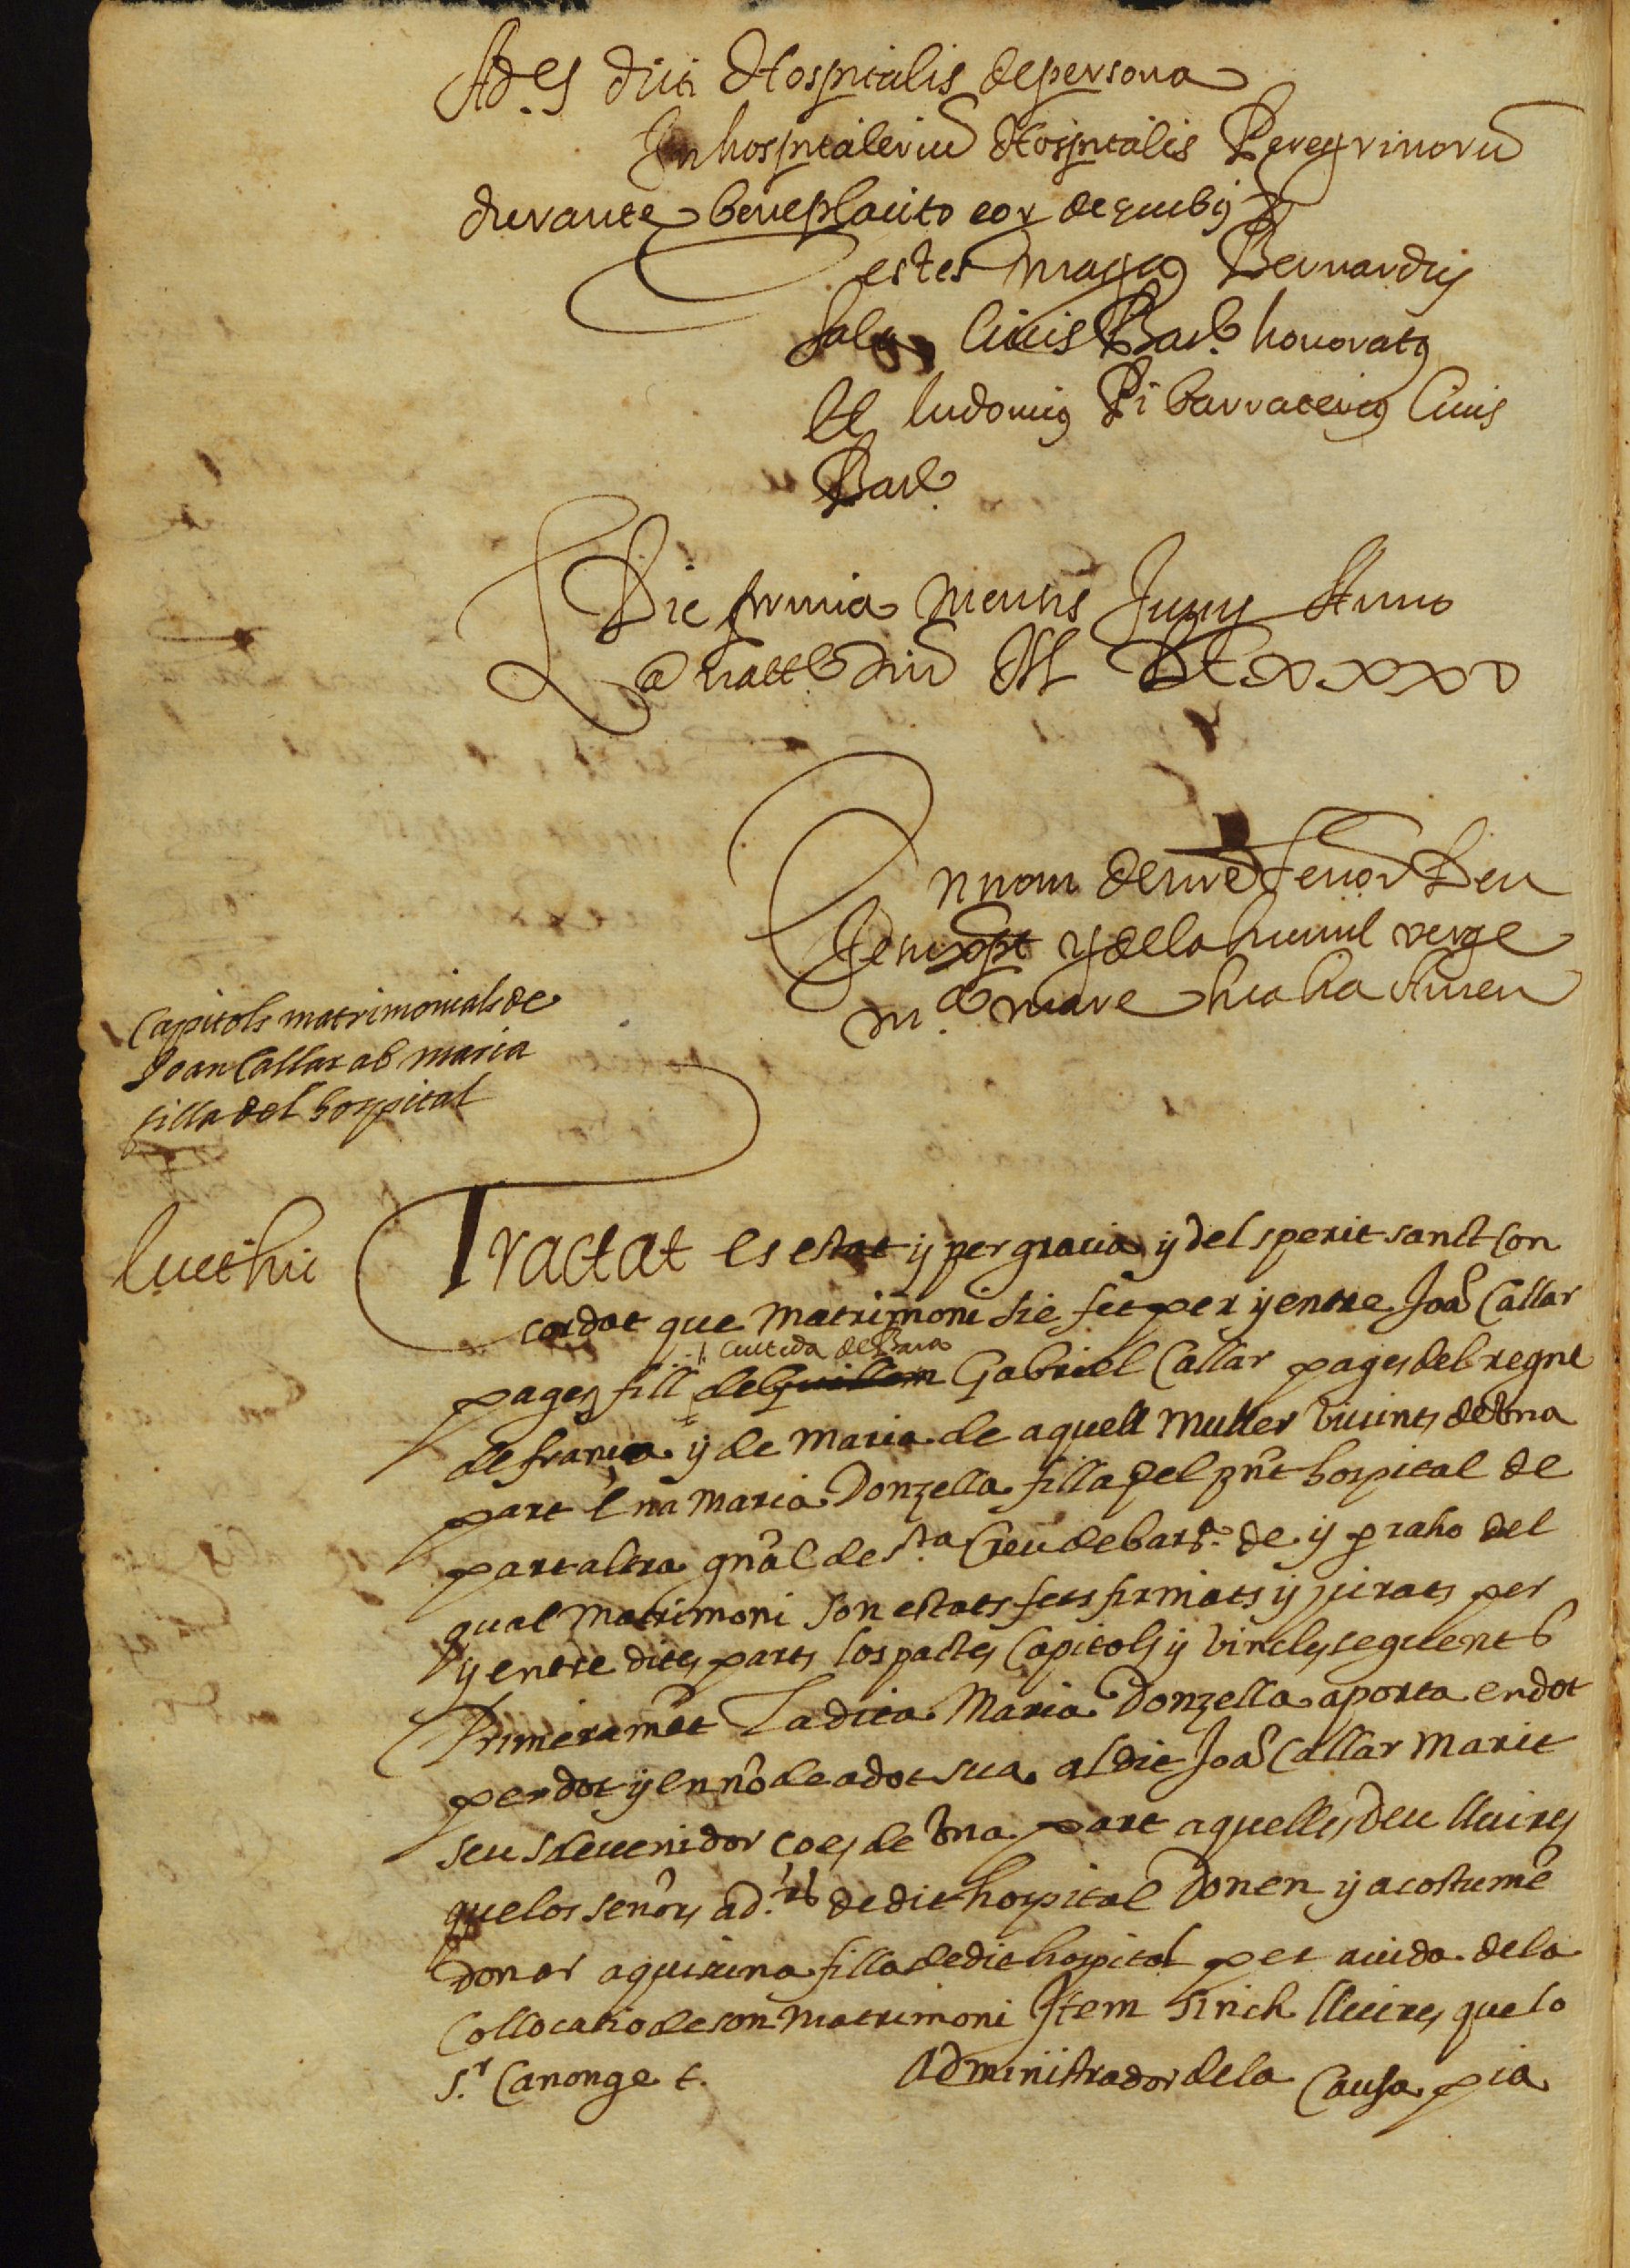 Ad.es dicti Hospitalis de persona
In hospitaleriũ Hospitalis Peregrinorũ
durante beneplacito eor de quibus
Testes magcus Bernardus
Sala Civis Barã honoratus
Et ludovicus Pi barraterius Civis
Barã
Die prima mensis Juny Anno
a natte Dni M DC XXXV
En nom de nre Senor Deu
Jesu xpt y de la humil verge
m.a mare sua sia Amen
Capitols matrimonials de
Joan Callar ab maria
filla del hospital
luct hic
Tractat es estat y per gracia y del sperit sanct con
cordat que matrimoni sie fet per y entre Joã Callar
ciutedà de Barã
pages fill de Guillem Gabriel Callar pages del regne
de franca y de Maria de aquell muller vivints de una
part E na Maria Donzella filla del pñt hospital de
part altra gñal de s.ta Creu de bar.a de y p raho del
qual matrimoni son estats fets firmats y jurats per
y entre dites parts los pactes Capitols y vincles seguents
Primeramẽt La dita Maria Donzella aporta en dot
per dot y en nõ de adot sua al dit Joã Callar marit
seu sdevenidor ço es de una part aquelles Deu lluires
que los señors ad.rs de dit hospital donen y acostumẽ
donar a quiscuna filla de dit hospital per aiuda de la
Collocatio de son matrimoni Item sinch lluires que lo
S.r Canonge t. Administrador de la Causa pia